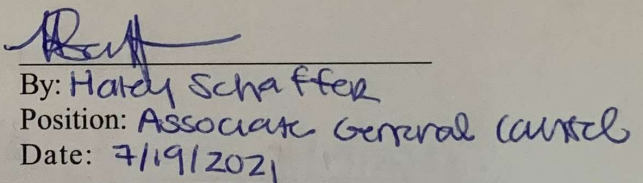 By: Hardy Schaffer
Position: Associate General Counsel
Date: 7/19/2021